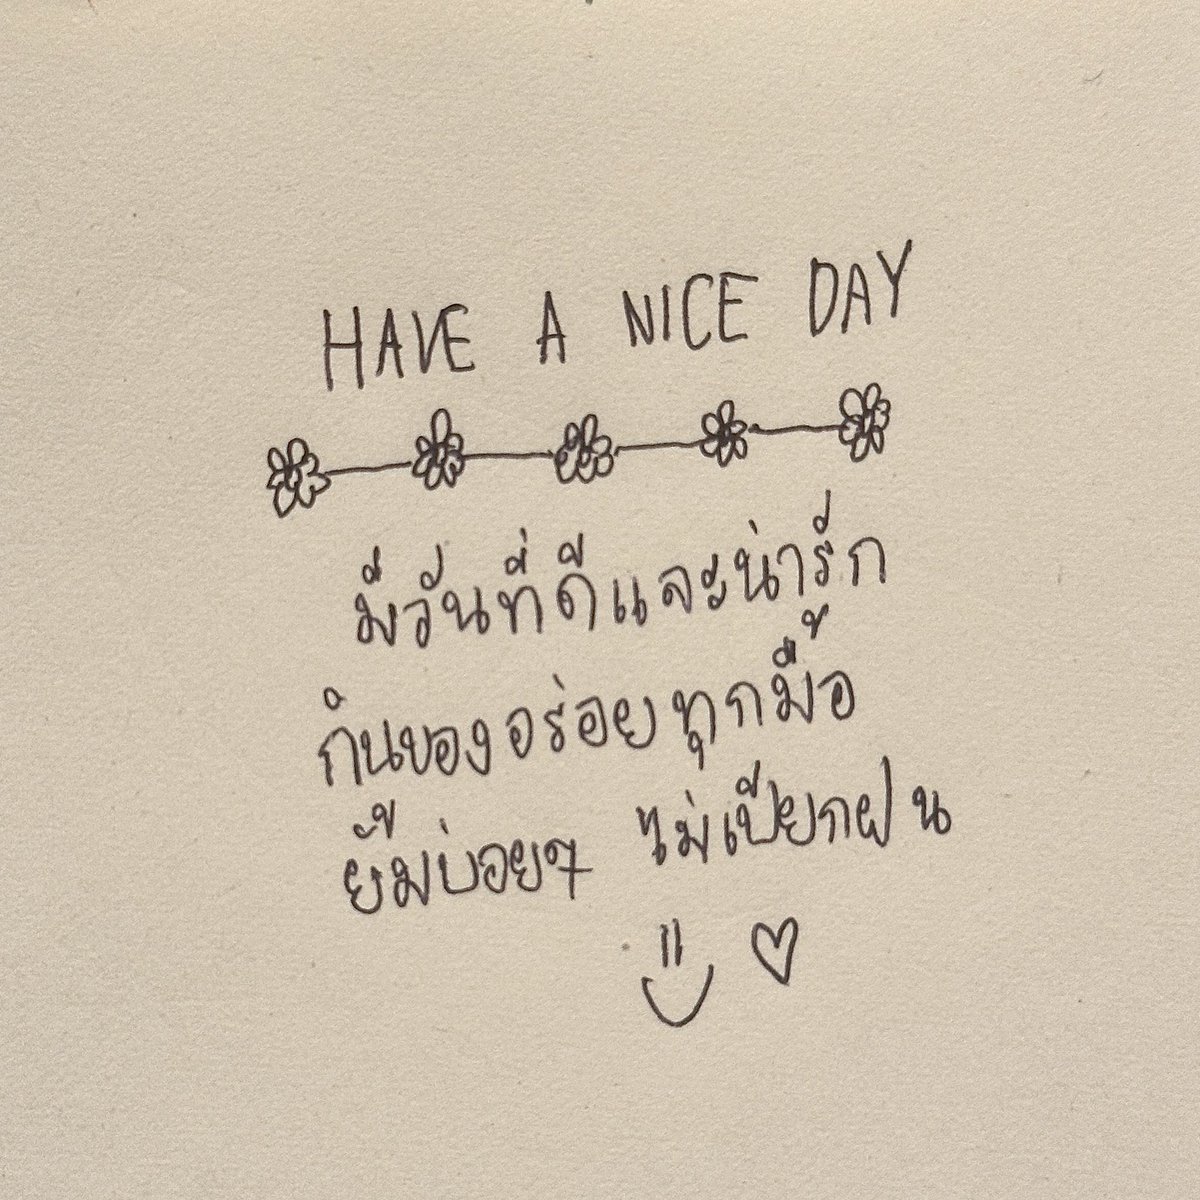 HAVE A NICE DAY
มีวันที่ดีและน่ารัก
กินของอร่อยทุกมื้อ
ยิ้มบ่อยๆ ไม่เปียกฝน